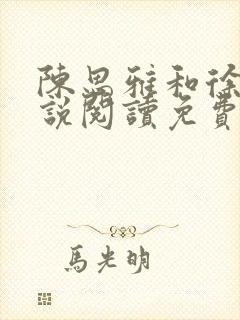 陳思雅和徐
說閱讀免費
馬光明